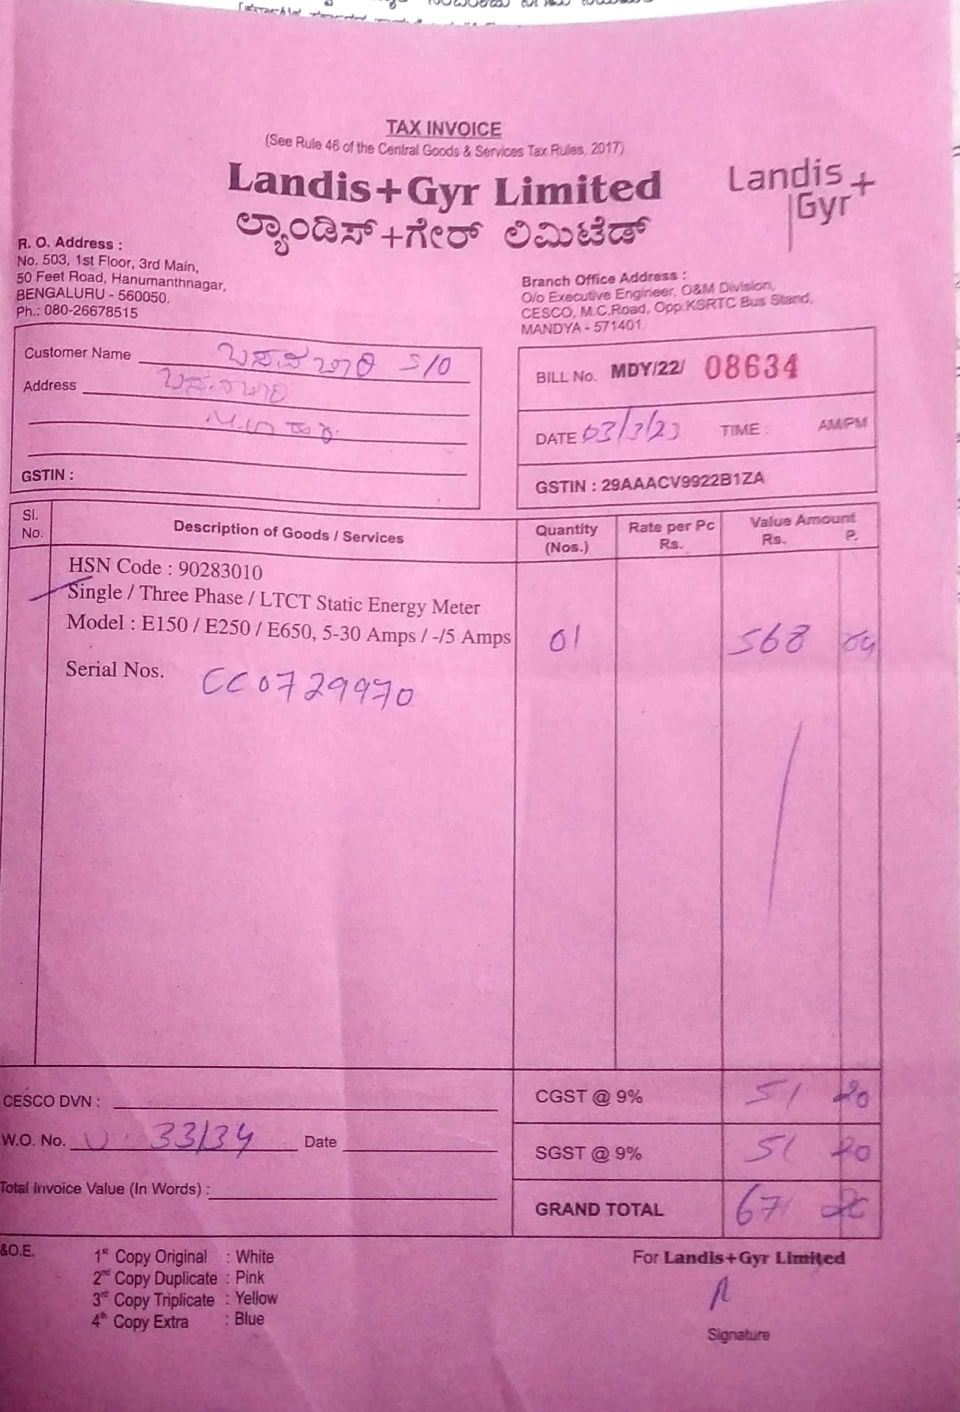 TAX INVOICE
(See Rule 46 of the Central Goods & Services Tax Rules, 2017)
Landis+Gyr Limited
ಲ್ಯಾಂಡಿಸ್+ಗೇರ್ ಲಿಮಿಟೆಡ್
Landis+
Gyr
R. O. Address :
No. 503, 1st Floor, 3rd Main,
50 Feet Road, Hanumanthnagar,
BENGALURU - 560050.
Ph.: 080-26678515
Branch Office Address :
O/o Executive Engineer, O&M Division,
CESCO, M.C.Road, Opp.KSRTC Bus Stand,
MANDYA - 571401.
Customer Name S/O
Address
GSTIN :
BILL No. MDY/22/ 08634
DATE 03/3/23 TIME : AM/PM
GSTIN : 29AAACV9922B1ZA
Sl. No. Description of Goods / Services Quantity (Nos.) Rate per Pc Rs. Value Amount Rs. P.
HSN Code : 90283010
Single / Three Phase / LTCT Static Energy Meter
Model : E150 / E250 / E650, 5-30 Amps / -/5 Amps 01 568
Serial Nos. CC0729970
CESCO DVN :
CGST @ 9% 51 20
W.O. No. 33/34 Date
SGST @ 9% 51 20
Total Invoice Value (In Words) :
GRAND TOTAL 671
&O.E.
1st Copy Original : White
2nd Copy Duplicate : Pink
3rd Copy Triplicate : Yellow
4th Copy Extra : Blue
For Landis+Gyr Limited
Signature